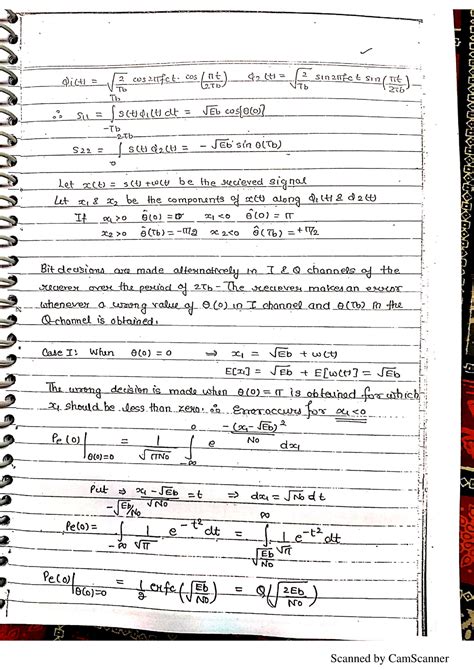 ϕ1(t) = √(2/Tb) cos2πfct · cos(πt/2Tb)   ϕ2(t) = √(2/Tb) sin2πfct sin(πt/2Tb)
∴ S11 = ∫_{-Tb}^{Tb} s(t)ϕ1(t)dt = √Eb cos[θ(0)]
S22 = ∫_{0}^{2Tb} s(t)ϕ2(t) = -√Eb sin θ(Tb)
Let x(t) = s(t)+w(t) be the recieved signal
Let x1 & x2 be the components of x(t) along ϕ1(t) & ϕ2(t)
If x1>0 θ̂(0)=0 x1<0 θ̂(0) = π
x2>0 θ̂(Tb)=-π/2 x2<0 θ̂(Tb) = +π/2
Bit decisions are made alternatively in I & Q channels of the
reciever over the period of 2Tb - The reciever makes an error
whenever a wrong value of θ(0) in I channel and θ(Tb) in the
Q-channel is obtained.
Case I: When θ(0) = 0 ⇒ x1 = √Eb + w(t)
E[x1] = √Eb + E[w(t)] = √Eb
The wrong decision is made when θ(0)=π is obtained for which
x1 should be less than zero. ∴ Error occurs for x1<0
Pe(0)|θ(0)=0 = 1/√(πNo) ∫_{-∞}^{0} e^{-(x1-√Eb)²/No} dx1
Put ⇒ (x1-√Eb)/√No = t ⇒ dx1 = √No dt
Pe(0) = ∫_{-∞}^{-√(Eb/No)} 1/√π e^{-t²} dt = ∫_{√(Eb/No)}^{∞} 1/√π e^{-t²} dt
Pe(0)|θ(0)=0 = 1/2 erfc(√(Eb/No)) = Q(√(2Eb/No))
Scanned by CamScanner